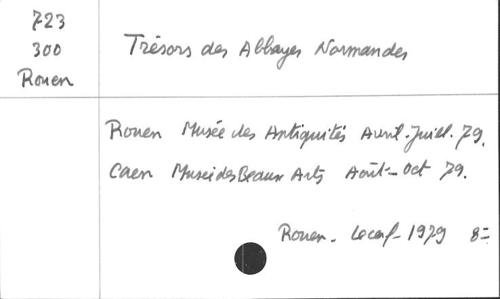 723
300
Rouen
Trésors des Abbayes Normandes
Rouen Musée des Antiquités Avril-Juill. 79.
Caen Musée des Beaux Arts Août-Oct 79.
Rouen - Lecerf - 1979 8=